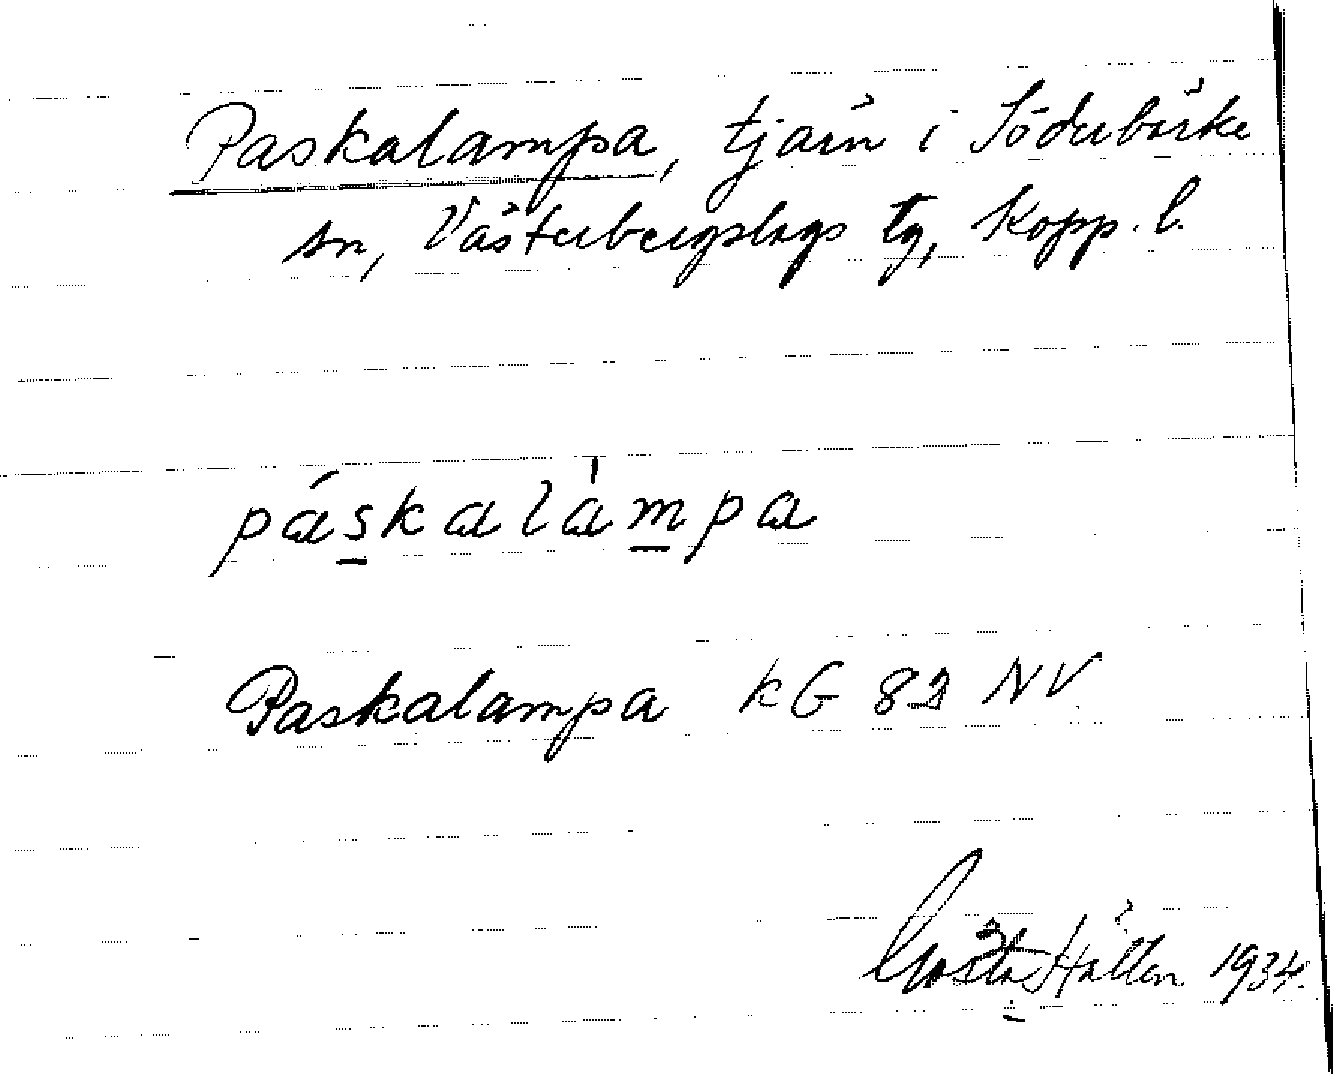 Paskalampa, tjärn i Söderbärke
sn, Västerbergslags tg, Kopp. l.
páskalàmpa
Paskalampa KG 82 NV
Gösta Hallen 1934.